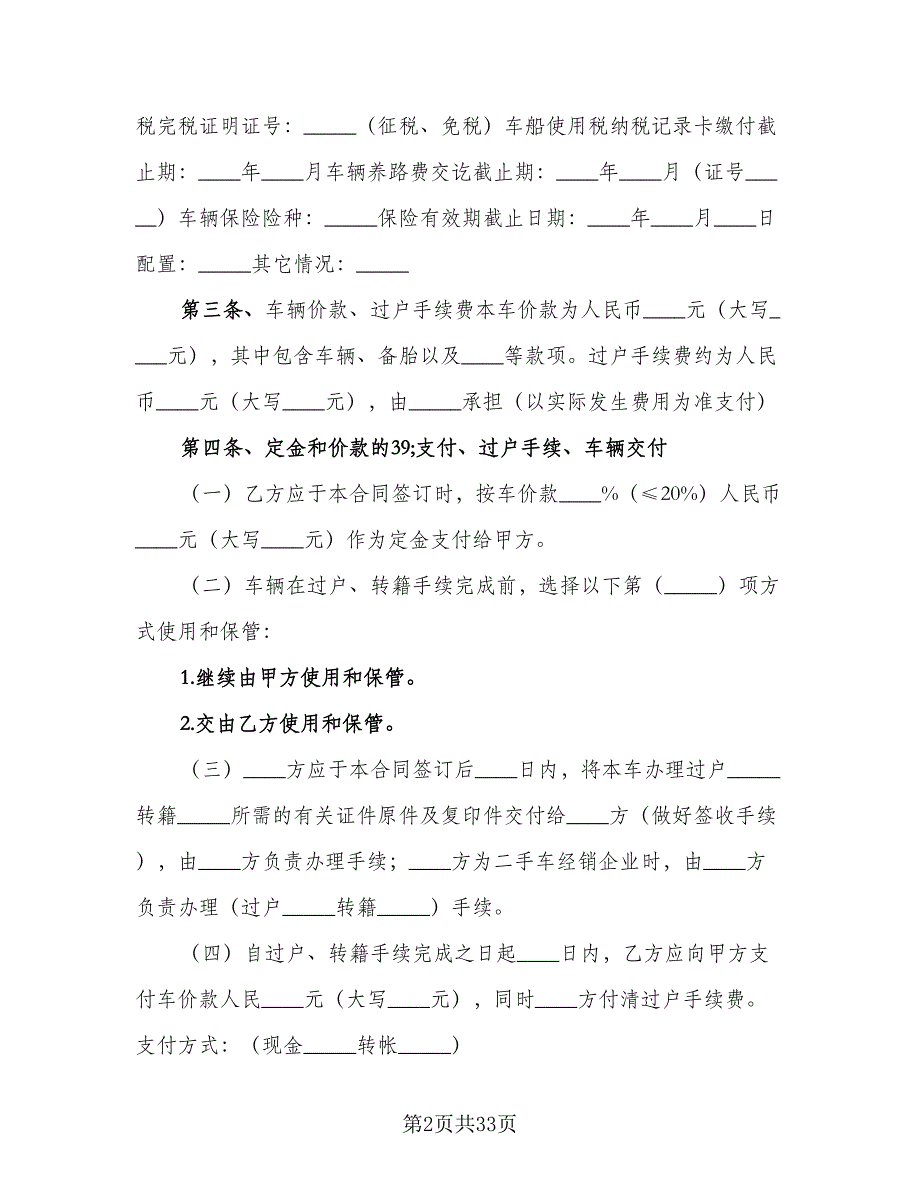 税完税证明证号：_____（征税、免税）车船使用税纳税记录卡缴付截
止期：____年____月车辆养路费交讫截止期：____年____月（证号___
__）车辆保险险种：_____保险有效期截止日期：____年____月____日
配置：_____其它情况：_____
第三条、车辆价款、过户手续费本车价款为人民币____元（大写_
___元），其中包含车辆、备胎以及____等款项。过户手续费约为人民
币____元（大写____元），由_____承担（以实际发生费用为准支付）
第四条、定金和价款的39;支付、过户手续、车辆交付
（一）乙方应于本合同签订时，按车价款____%（≤20%）人民币
____元（大写____元）作为定金支付给甲方。
（二）车辆在过户、转籍手续完成前，选择以下第（_____）项方
式使用和保管：
1.继续由甲方使用和保管。
2.交由乙方使用和保管。
（三）____方应于本合同签订后____日内，将本车办理过户_____
转籍_____所需的有关证件原件及复印件交付给____方（做好签收手续
），由____方负责办理手续；____方为二手车经销企业时，由____方
负责办理（过户_____转籍_____）手续。
（四）自过户、转籍手续完成之日起____日内，乙方应向甲方支
付车价款人民____元（大写____元），同时____方付清过户手续费。
支付方式：（现金_____转帐_____）
第2页共33页